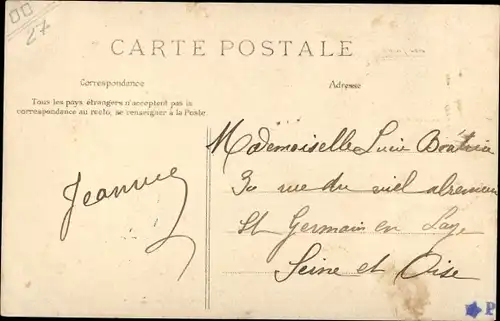 27
CARTE POSTALE
Correspondance
Adresse
Tous les pays étrangers n'acceptent pas la
correspondance au recto, se renseigner à la Poste
Mademoiselle Lucie
30 rue du viel abreuvoir
St Germain en Laye
Seine et Oise
Jeanne
P